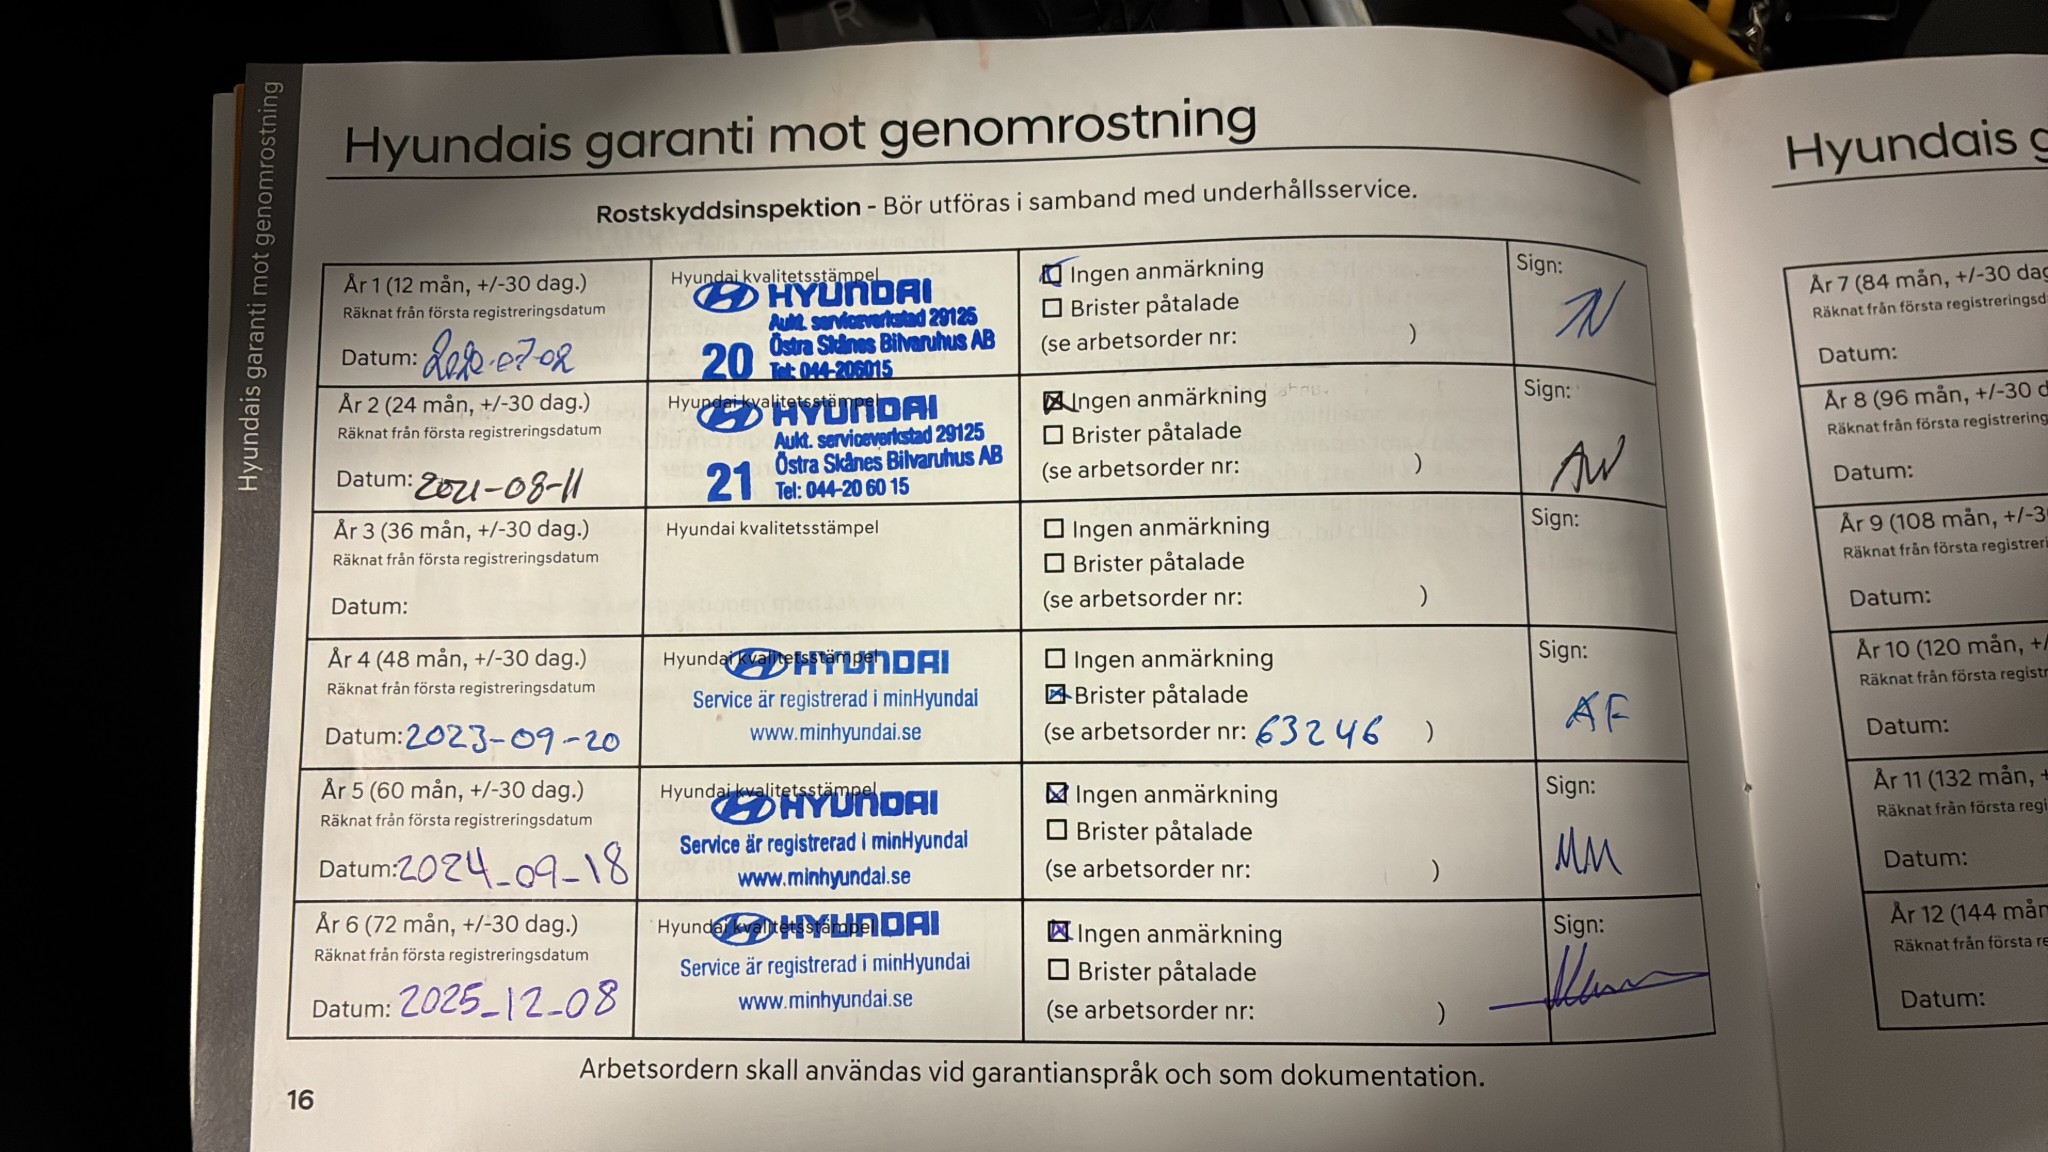 R
Hyundais garanti mot genomrostning
Hyundais garanti mot genomrostning
Rostskyddsinspektion - Bör utföras i samband med underhållsservice.
År 1 (12 mån, +/-30 dag.)
Räknat från första registreringsdatum
Datum: 2020-07-02
Hyundai kvalitetsstämpel
HYUNDAI
Aukt. serviceverkstad 29125
20 Östra Skånes Bilvaruhus AB
Tel: 044-206015
Ingen anmärkning
Brister påtalade
(se arbetsorder nr: )
Sign:
År 2 (24 mån, +/-30 dag.)
Räknat från första registreringsdatum
Datum: 2021-08-11
Hyundai kvalitetsstämpel
HYUNDAI
Aukt. serviceverkstad 29125
21 Östra Skånes Bilvaruhus AB
Tel: 044-20 60 15
Ingen anmärkning
Brister påtalade
(se arbetsorder nr: )
Sign:
AW
År 3 (36 mån, +/-30 dag.)
Räknat från första registreringsdatum
Datum:
Hyundai kvalitetsstämpel
Ingen anmärkning
Brister påtalade
(se arbetsorder nr: )
Sign:
År 4 (48 mån, +/-30 dag.)
Räknat från första registreringsdatum
Datum: 2023-09-20
Hyundai kvalitetsstämpel
HYUNDAI
Service är registrerad i minHyundai
www.minhyundai.se
Ingen anmärkning
Brister påtalade
(se arbetsorder nr: 63246 )
Sign:
AF
År 5 (60 mån, +/-30 dag.)
Räknat från första registreringsdatum
Datum: 2024-09-18
Hyundai kvalitetsstämpel
HYUNDAI
Service är registrerad i minHyundai
www.minhyundai.se
Ingen anmärkning
Brister påtalade
(se arbetsorder nr: )
Sign:
MM
År 6 (72 mån, +/-30 dag.)
Räknat från första registreringsdatum
Datum: 2025-12-08
Hyundai kvalitetsstämpel
HYUNDAI
Service är registrerad i minHyundai
www.minhyundai.se
Ingen anmärkning
Brister påtalade
(se arbetsorder nr: )
Sign:
Arbetsordern skall användas vid garantianspråk och som dokumentation.
16
Hyundais g
År 7 (84 mån, +/-30 dag
Räknat från första registreringsd
Datum:
År 8 (96 mån, +/-30 d
Räknat från första registrering
Datum:
År 9 (108 mån, +/-3
Räknat från första registreri
Datum:
År 10 (120 mån, +/
Räknat från första registr
Datum:
År 11 (132 mån, +
Räknat från första regi
Datum:
År 12 (144 mån
Räknat från första re
Datum: